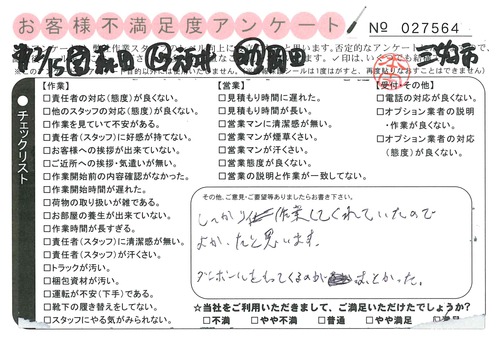 お客様不満足度アンケート
№ 027564
三鷹市
チェックリスト
【作業】
□責任者の対応(態度)が良くない。
□他のスタッフの対応(態度)が良くない。
□作業を見ていて不安がある。
□責任者(スタッフ)に好感が持てない。
□お客様への挨拶が出来ていない。
□ご近所への挨拶・気遣いが無い。
□作業開始前の内容確認がなかった。
□作業開始時間が遅れた。
□荷物の取り扱いが雑である。
□お部屋の養生が出来ていない。
□作業時間が長すぎる。
□責任者(スタッフ)に清潔感が無い。
□責任者(スタッフ)が汗くさい。
□トラックが汚い。
□梱包資材が汚い。
□運転が不安(下手)である。
□靴下の履き替えをしてない。
□スタッフにやる気がみられない。
【営業】
□見積もり時間に遅れた。
□見積もり時間が長い。
□営業マンに清潔感が無い。
□営業マンが煙草くさい。
□営業マンが汗くさい。
□営業態度が良くない。
□営業の説明と作業が一致してない。
【受付・その他】
□電話の対応が良くない。
□オプション業者の説明
・作業が良くない。
□オプション業者の対応
(態度)が良くない。
その他、ご意見・ご要望等ありましたらお書き下さい。
しっかり作業してくれていたので
よかったと思います。
ダンボールをもってくるのが おそかった。
☆当社をご利用いただきまして、ご満足いただけたでしょうか?
□不満 □やや不満 □普通 □やや満足 □満足